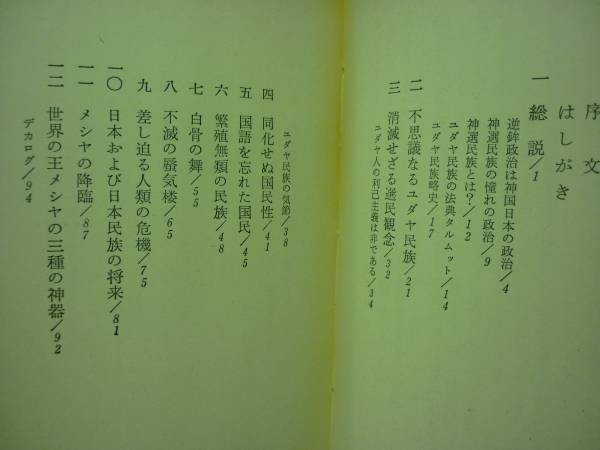 序文
はしがき
一 総説/1
逆鉾政治は神国日本の政治/4
神選民族の憧れの政治/9
神選民族とは?/12
ユダヤ民族の法典タルムット/14
ユダヤ民族略史/17
二 不思議なるユダヤ民族/21
三 消滅せざる選民観念/32
ユダヤ人の利己主義は非である/34
ユダヤ民族の気節/38
四 同化せぬ国民性/41
五 国語を忘れた国民/45
六 繁殖無類の民族/48
七 白骨の舞/55
八 不滅の蜃気楼/65
九 差し迫る人類の危機/75
一〇 日本および日本民族の将来/81
一一 メシヤの降臨/87
一二 世界の王メシヤの三種の神器/92
デカログ/94